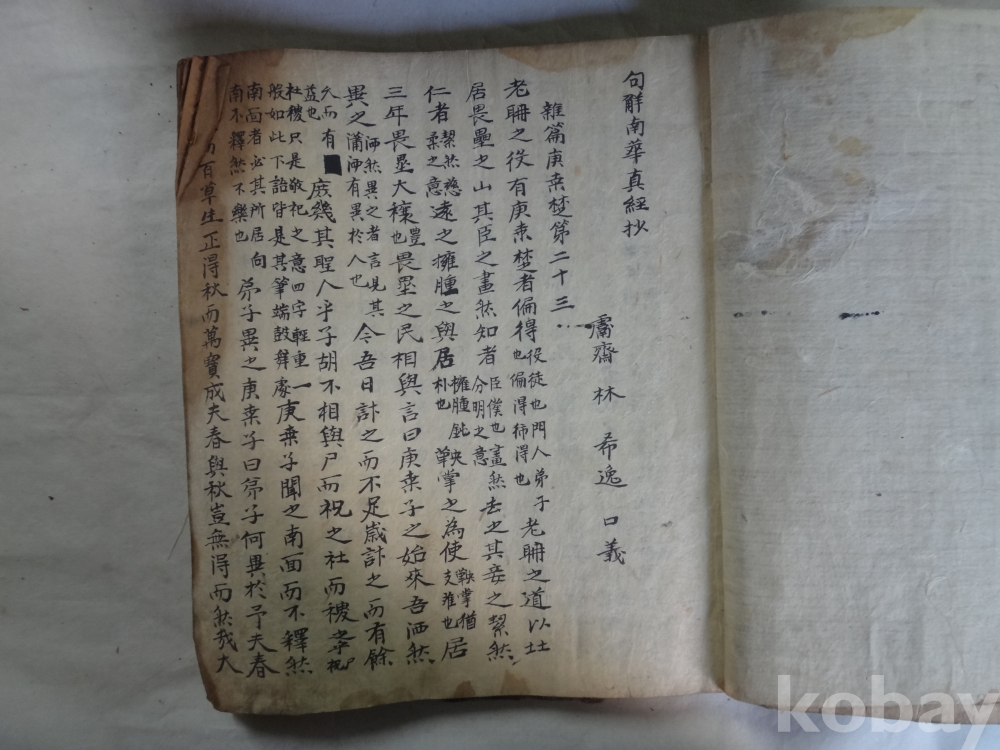 句解南華真經抄
鬳齋 林 希逸 口義
雜篇庚桒楚第二十三
老聃之役有庚桒楚者偏得役徒也門人弟子也偏得稀得也老聃之道以北
居畏壘之山其臣之畫然知者臣僕也畫然分明之意去之其妾之絜然
仁者絜然慈柔之意遠之擁腫之與居擁腫朴也鈍鞅掌之為使鞅掌猶支離也居
三年畏壘大穰豊也畏壘之民相與言曰庚桒子之始來吾洒然
異之洒然異之者言見其瀟洒有異於人也今吾日計之而不足歲計之而有餘
久而有益也庶幾其聖人乎子胡不相與尸而祝之社而稷之乎祝
社稷只是敬祀之意四字輕重一般如此下語皆是其筆端鼓舞處庚桒子聞之南面而不釋然
南面者必其所居向南不釋然不樂也弟子異之庚桒子曰弟子何異於予夫春
百草生正得秋而萬寶成夫春與秋豈無得而然哉大
kobay